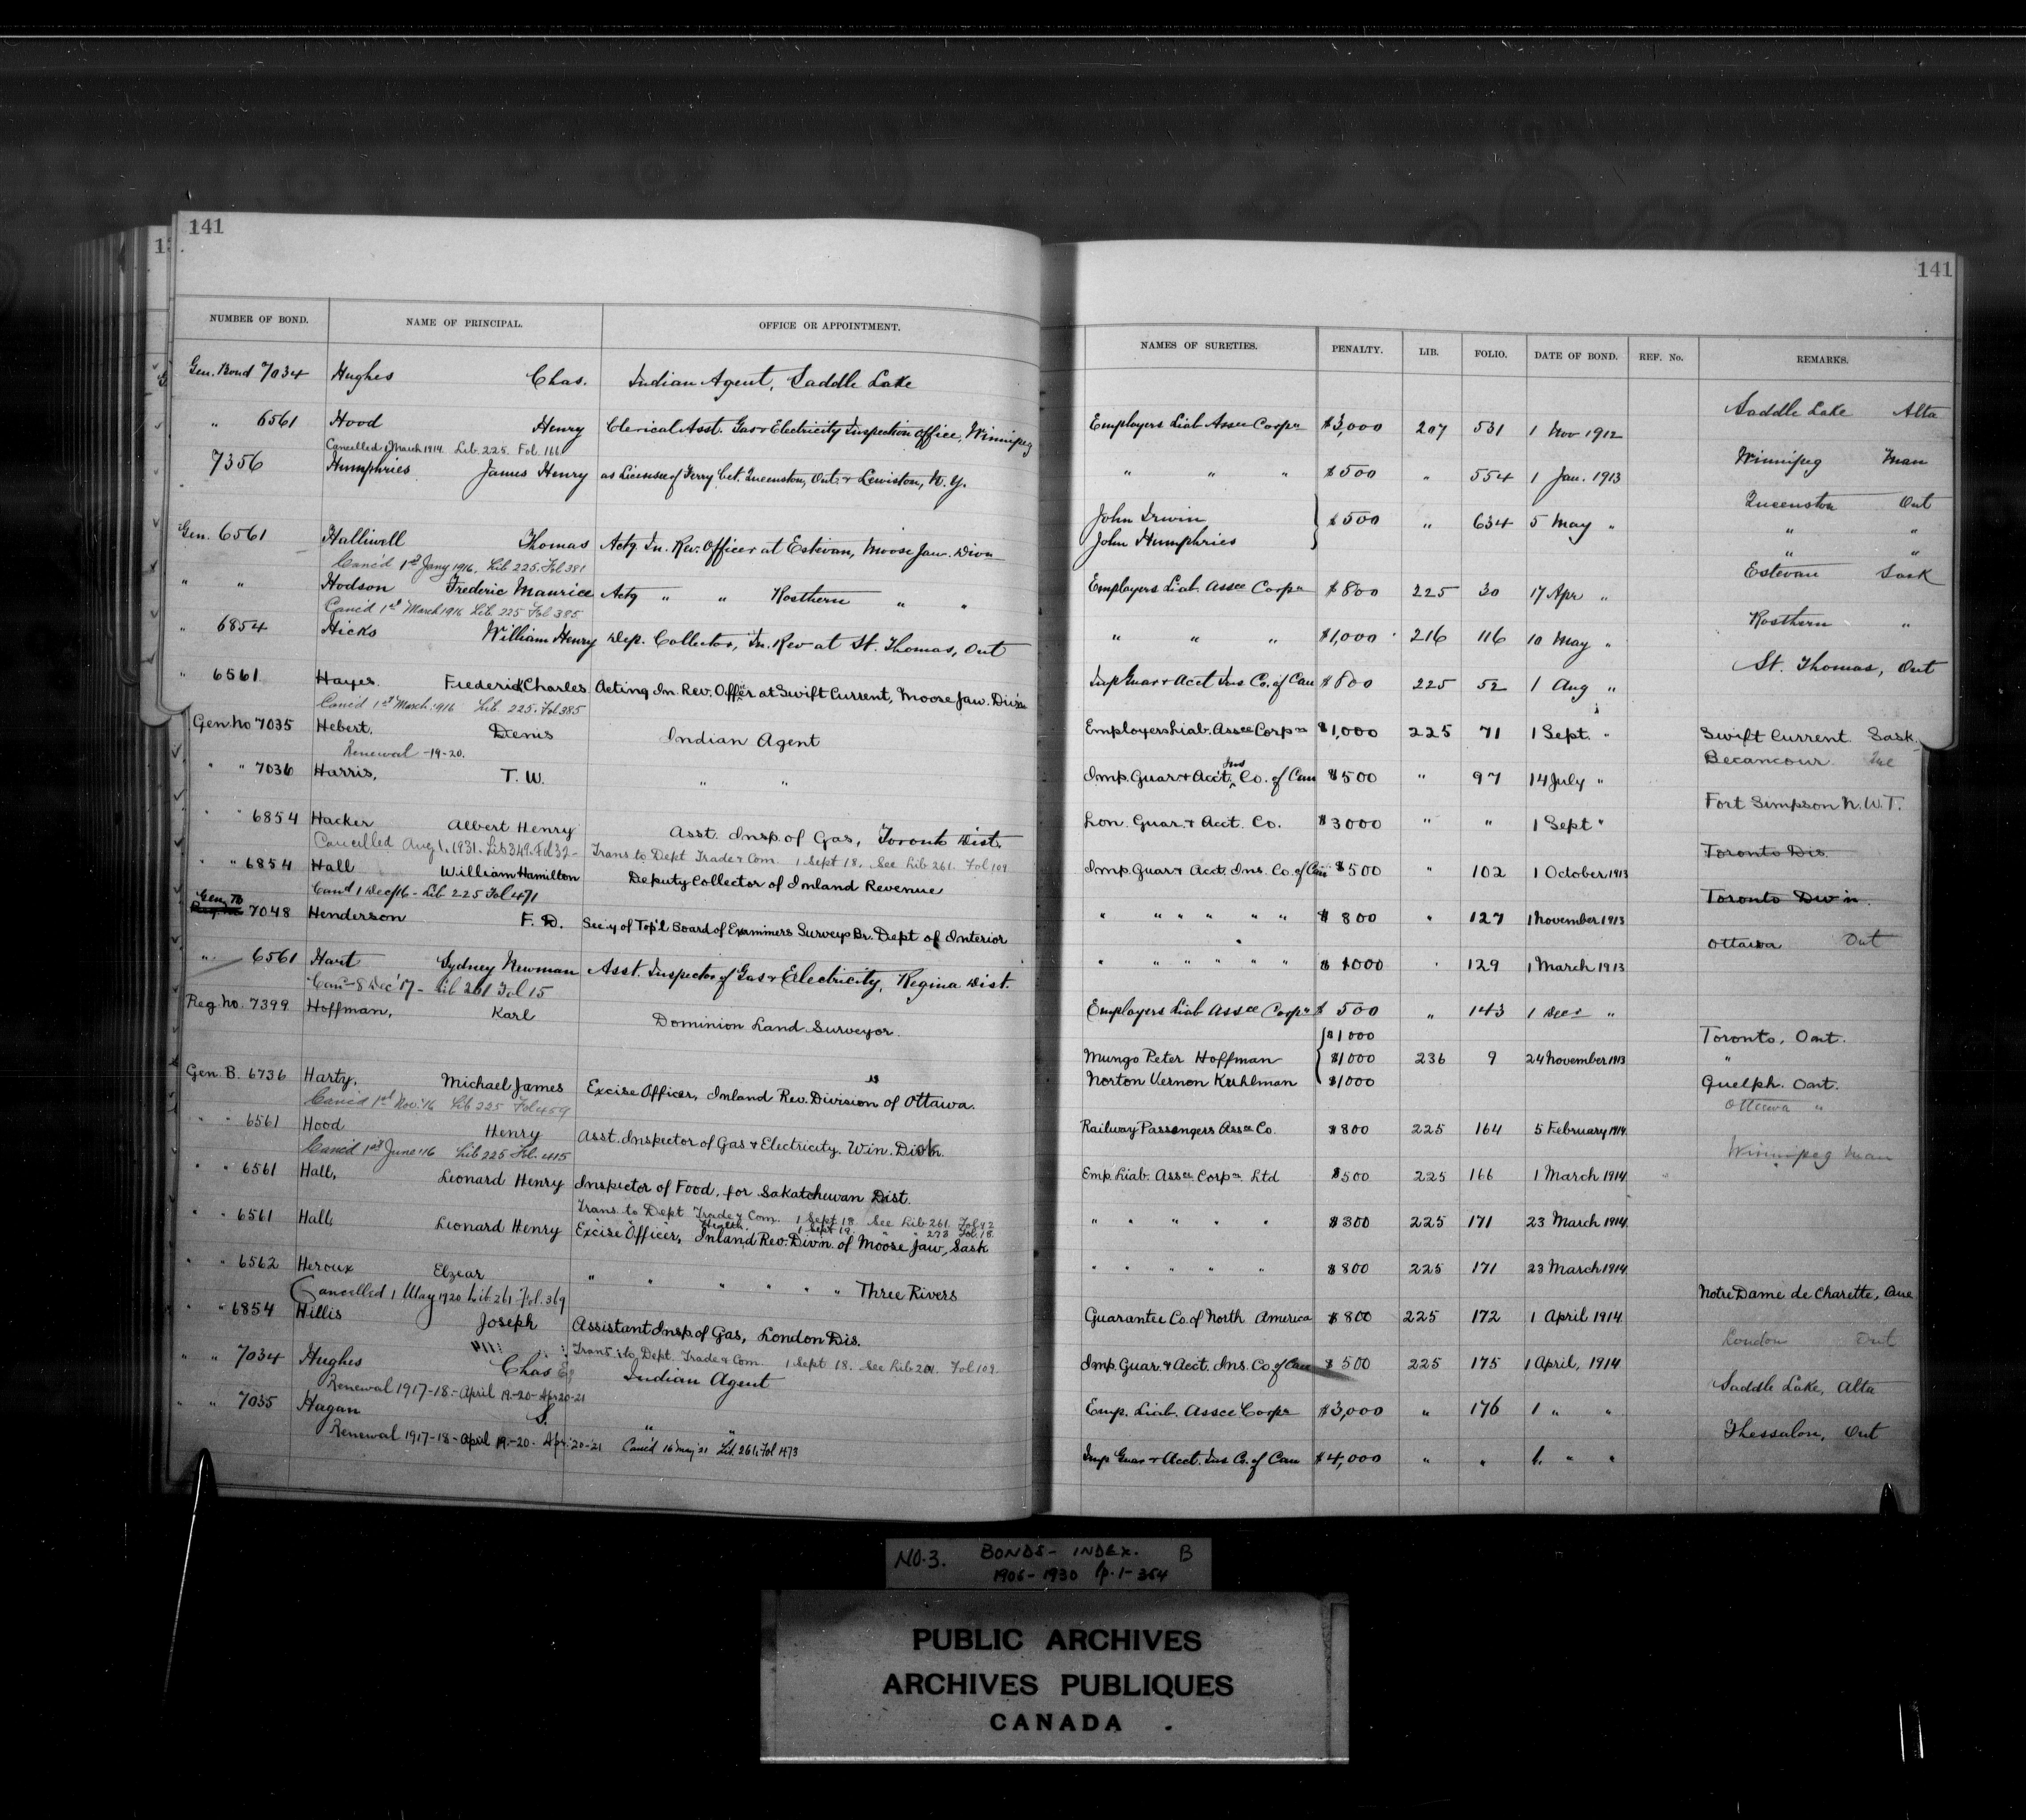 141
NUMBER OF BOND. NAME OF PRINCIPAL. OFFICE OR APPOINTMENT.
Gen. Bond 7034 Hughes Chas. Indian Agent, Saddle Lake
" 6561 Hood Henry Clerical Asst. Gas & Electricity Inspection Office, Winnipeg
Cancelled 1 March 1914 Lib. 225. Fol. 166
7356 Humphries James Henry as Licensee of Ferry bet. Queenston, Ont. & Lewiston, N.Y.
Gen. 6561 Halliwell Thomas Actg. In. Rev. Officer at Estevan, Moose Jaw. Divn
Canc'd 1st Jany 1916. Lib 225. Fol 381
" " Hodson Frederic Maurice Actg " " Rosthern " "
Canc'd 1st March 1916 Lib. 225 Fol 385
" 6854 Hicks William Henry Dep. Collector, In. Rev at St. Thomas, Ont
" 6561 Hayes. Frederick Charles Acting In. Rev. Offr at Swift Current, Moose Jaw. Divsn
Canc'd 1st March. 1916 Lib. 225. Fol 385
Gen. No 7035 Hebert. Denis Indian Agent
Renewal -19-20.
" " 7036 Harris, T. W. " "
" " 6854 Hacker Albert Henry Asst. Insp. of Gas, Toronto Dist.
Cancelled Aug 1. 1931. Lib 349. Fol 32- Trans to Dept Trade & Com. 1 Sept 18. See Lib 261. Fol 109
" " 6854 Hall William Hamilton Deputy Collector of Inland Revenue
Canc'd 1 Dec/16 - Lib 225 Fol 471
Gen. B 7048 Henderson F. D. Sec.y of Top'l Board of Examiners Surveys Br. Dept of Interior
" 6561 Hart Sydney Newman Asst. Inspector of Gas & Electricity, Regina Dist.
Canc - 8 Dec '17 - Lib 261 Fol 15
Reg. No. 7399 Hoffman, Karl Dominion Land Surveyor.
Gen. B. 6736 Harty. Michael James Excise Officer, Inland Rev. Division of Ottawa.
Canc'd 1st Nov. '16 Lib 225 Fol 459
" " 6561 Hood Henry Asst. Inspector of Gas & Electricity. Win. Dist.
Canc'd 1st June '16 Lib 225 Fol. 415
" " 6561 Hall, Leonard Henry Inspector of Food, for Sakatchewan Dist.
Trans. to Dept Trade & Com. 1 Sept 18. See Lib 261. Fol 92
Health. 1 Sept 19. " " 273 Fol. 18.
" " 6561 Hall, Leonard Henry Excise Officer, Inland Rev. Div'n. of Moose Jaw, Sask
" " 6562 Heroux Elzear " " " " " " Three Rivers
Cancelled 1 May 1920 Lib 261 Fol. 369
" " 6854 Hillis Joseph Assistant Insp. of Gas, London Dis.
Trans to Dept. Trade & Com. 1 Sept 18. See Lib 261. Fol 109
" " 7034 Hughes Chas Indian Agent
Renewal 1917-18 - April 19-20- Apr 20-21
" " 7035 Hagan S. " "
Renewal 1917-18 - April 19-20 - Apr. 20-21 Canc'd 16 May 21 Lib 261, Fol 473
141
NAMES OF SURETIES. PENALTY. LIB. FOLIO. DATE OF BOND. REF. No. REMARKS.
Saddle Lake Alta
Employers Liab Assce Corpn $3,000 207 531 1 Nov 1912
Winnipeg Man
" " " $500 " 554 1 Jan. 1913
Queenston Ont
John Irwin $500 " 634 5 May "
" "
John Humphries
" "
Estevan Sask
Employers Liab. Assce Corpn $800 225 30 17 Apr "
Rosthern "
" " " $1,000 216 116 10 May "
St. Thomas, Ont
Imp Guar & Acct Ins Co. of Can $800 225 52 1 Aug "
Employers Liab. Assce Corpn $1,000 225 71 1 Sept. " Swift Current. Sask.
Becancour Que
Imp. Guar & Acct. Ins Co. of Can $500 " 97 14 July "
Fort Simpson N.W.T.
Lon. Guar. & Acct. Co. $3000 " " 1 Sept "
Toronto Dis.
Imp. Guar & Acct. Ins. Co. of Can $500 " 102 1 October 1913
Toronto Div'n.
" " " " " " $800 " 127 1 November 1913
Ottawa Ont
" " " " " " $1000 " 129 1 March 1913
Employers Liab Assce Corpn $500 " 143 1 Decr "
$1000 Toronto, Ont.
Mungo Peter Hoffman $1000 236 9 24 November 1913 "
Norton Vernon Kuhlman $1000 Guelph. Ont.
Ottawa "
Railway Passengers Assce Co. $800 225 164 5 February 1914
Winnipeg Man
Emp. Liab. Assce Corpn Ltd $500 225 166 1 March 1914
" " " " " $300 225 171 23 March 1914
" " " " " $800 225 171 23 March 1914
Notre Dame de Charette, Que
Guarantee Co. of North America $800 225 172 1 April 1914
London Ont
Imp. Guar. & Acct. Ins. Co. of Can $500 225 175 1 April, 1914
Saddle Lake, Alta
Emp. Liab. Assce Corpn $3,000 " 176 1 " "
Thessalon, Ont
Imp Guar & Acct. Ins Co. of Can $4,000 " " 1. " "
NO. 3. BONDS - INDEX. B
1906-1930 p. 1-364
PUBLIC ARCHIVES
ARCHIVES PUBLIQUES
CANADA